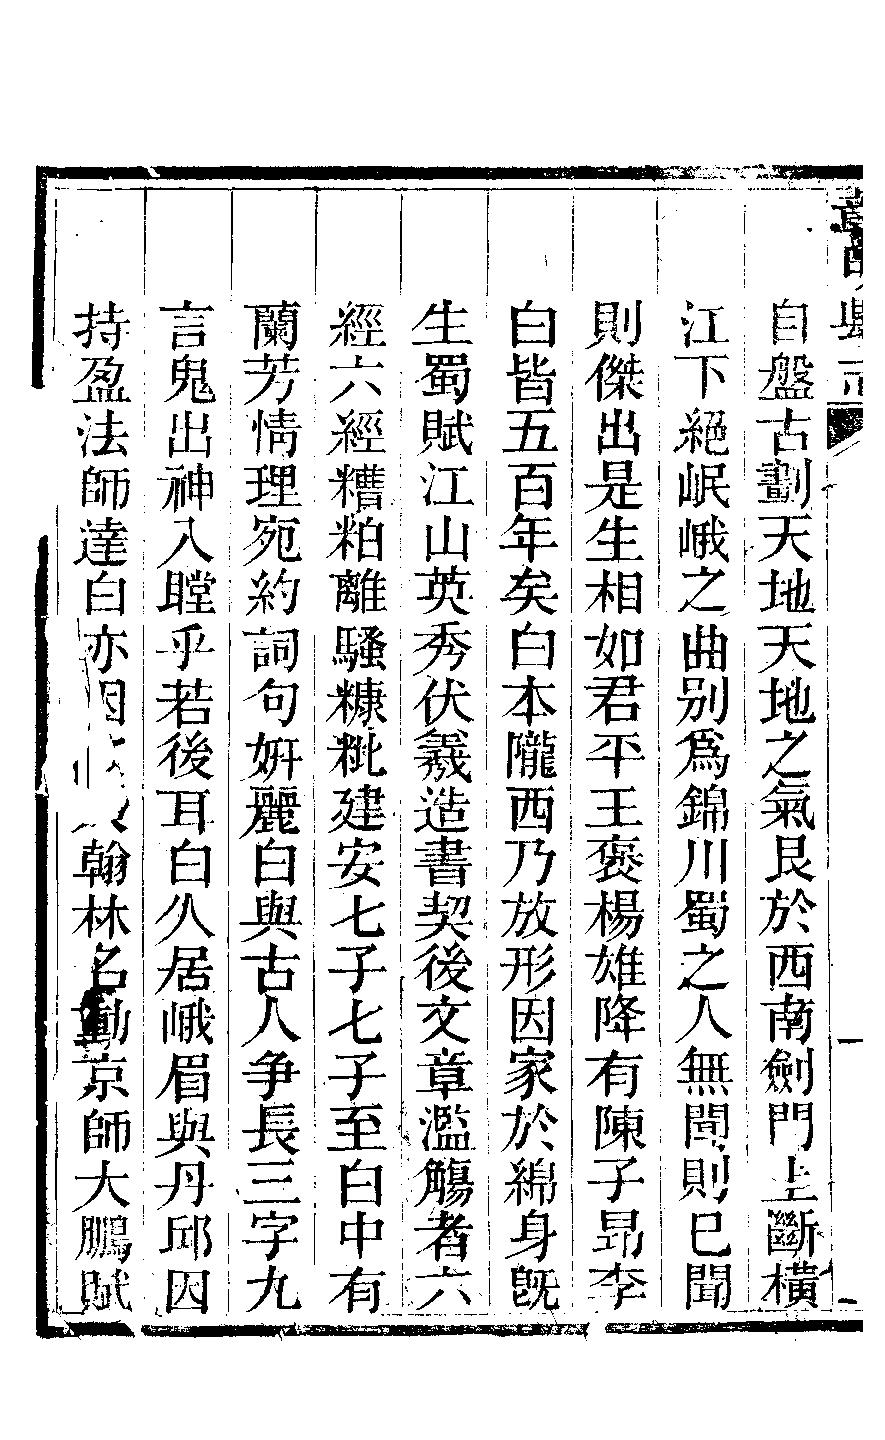 自盤古劃天地天地之氣艮於西南劍門上斷橫
江下絕岷峨之曲別爲錦川蜀之人無聞則已聞
則傑出是生相如君平王褒楊雄降有陳子昂李
白皆五百年矣白本隴西乃放形因家於綿身既
生蜀賦江山英秀伏羲造書契後文章濫觴者六
經六經糟粕離騷糠粃建安七子七子至白中有
蘭芳情理宛約詞句妍麗白與古人爭長三字九
言鬼出神入瞠乎若後耳白久居峨眉與丹邱因
持盈法師達白亦因翰林名動京師大鵬賦